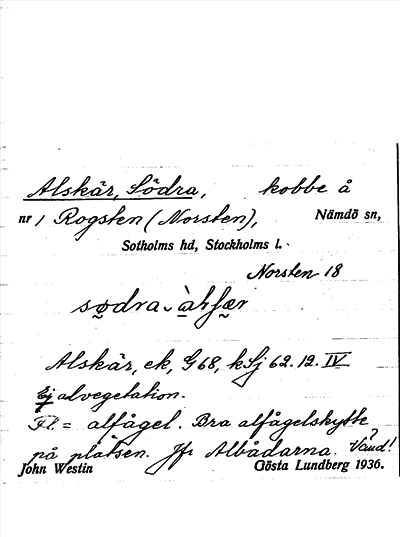 Alskär, Södra, kobbe å
nr 1 Rogsten (Norsten), Nämdö sn,
Sotholms hd, Stockholms l.
Norsten 18
Alskär, ek, G68, kSj 62.12. IV
Ej alvegetation.
Fl. = alfågel. Bra alfågelskytte
på platsen. Jfr Albådarna. ?
John Westin Gösta Lundberg 1936.